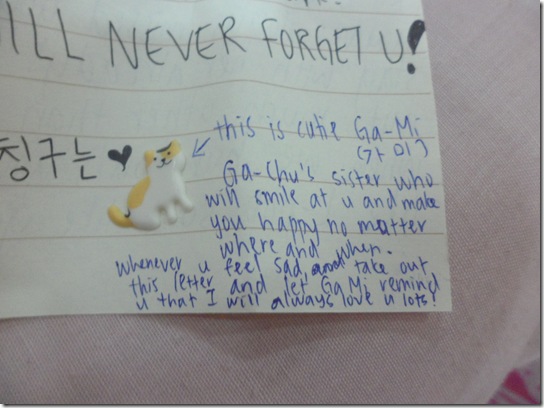 ILL NEVER FORGET U!
칭구는 ♥
this is cutie Ga-Mi
(가 미)
Ga-Chu's sister who
will smile at u and make
you happy no matter
where and when.
Whenever u feel sad, and take out
this letter and let GaMi remind
u that I will always love u lots!